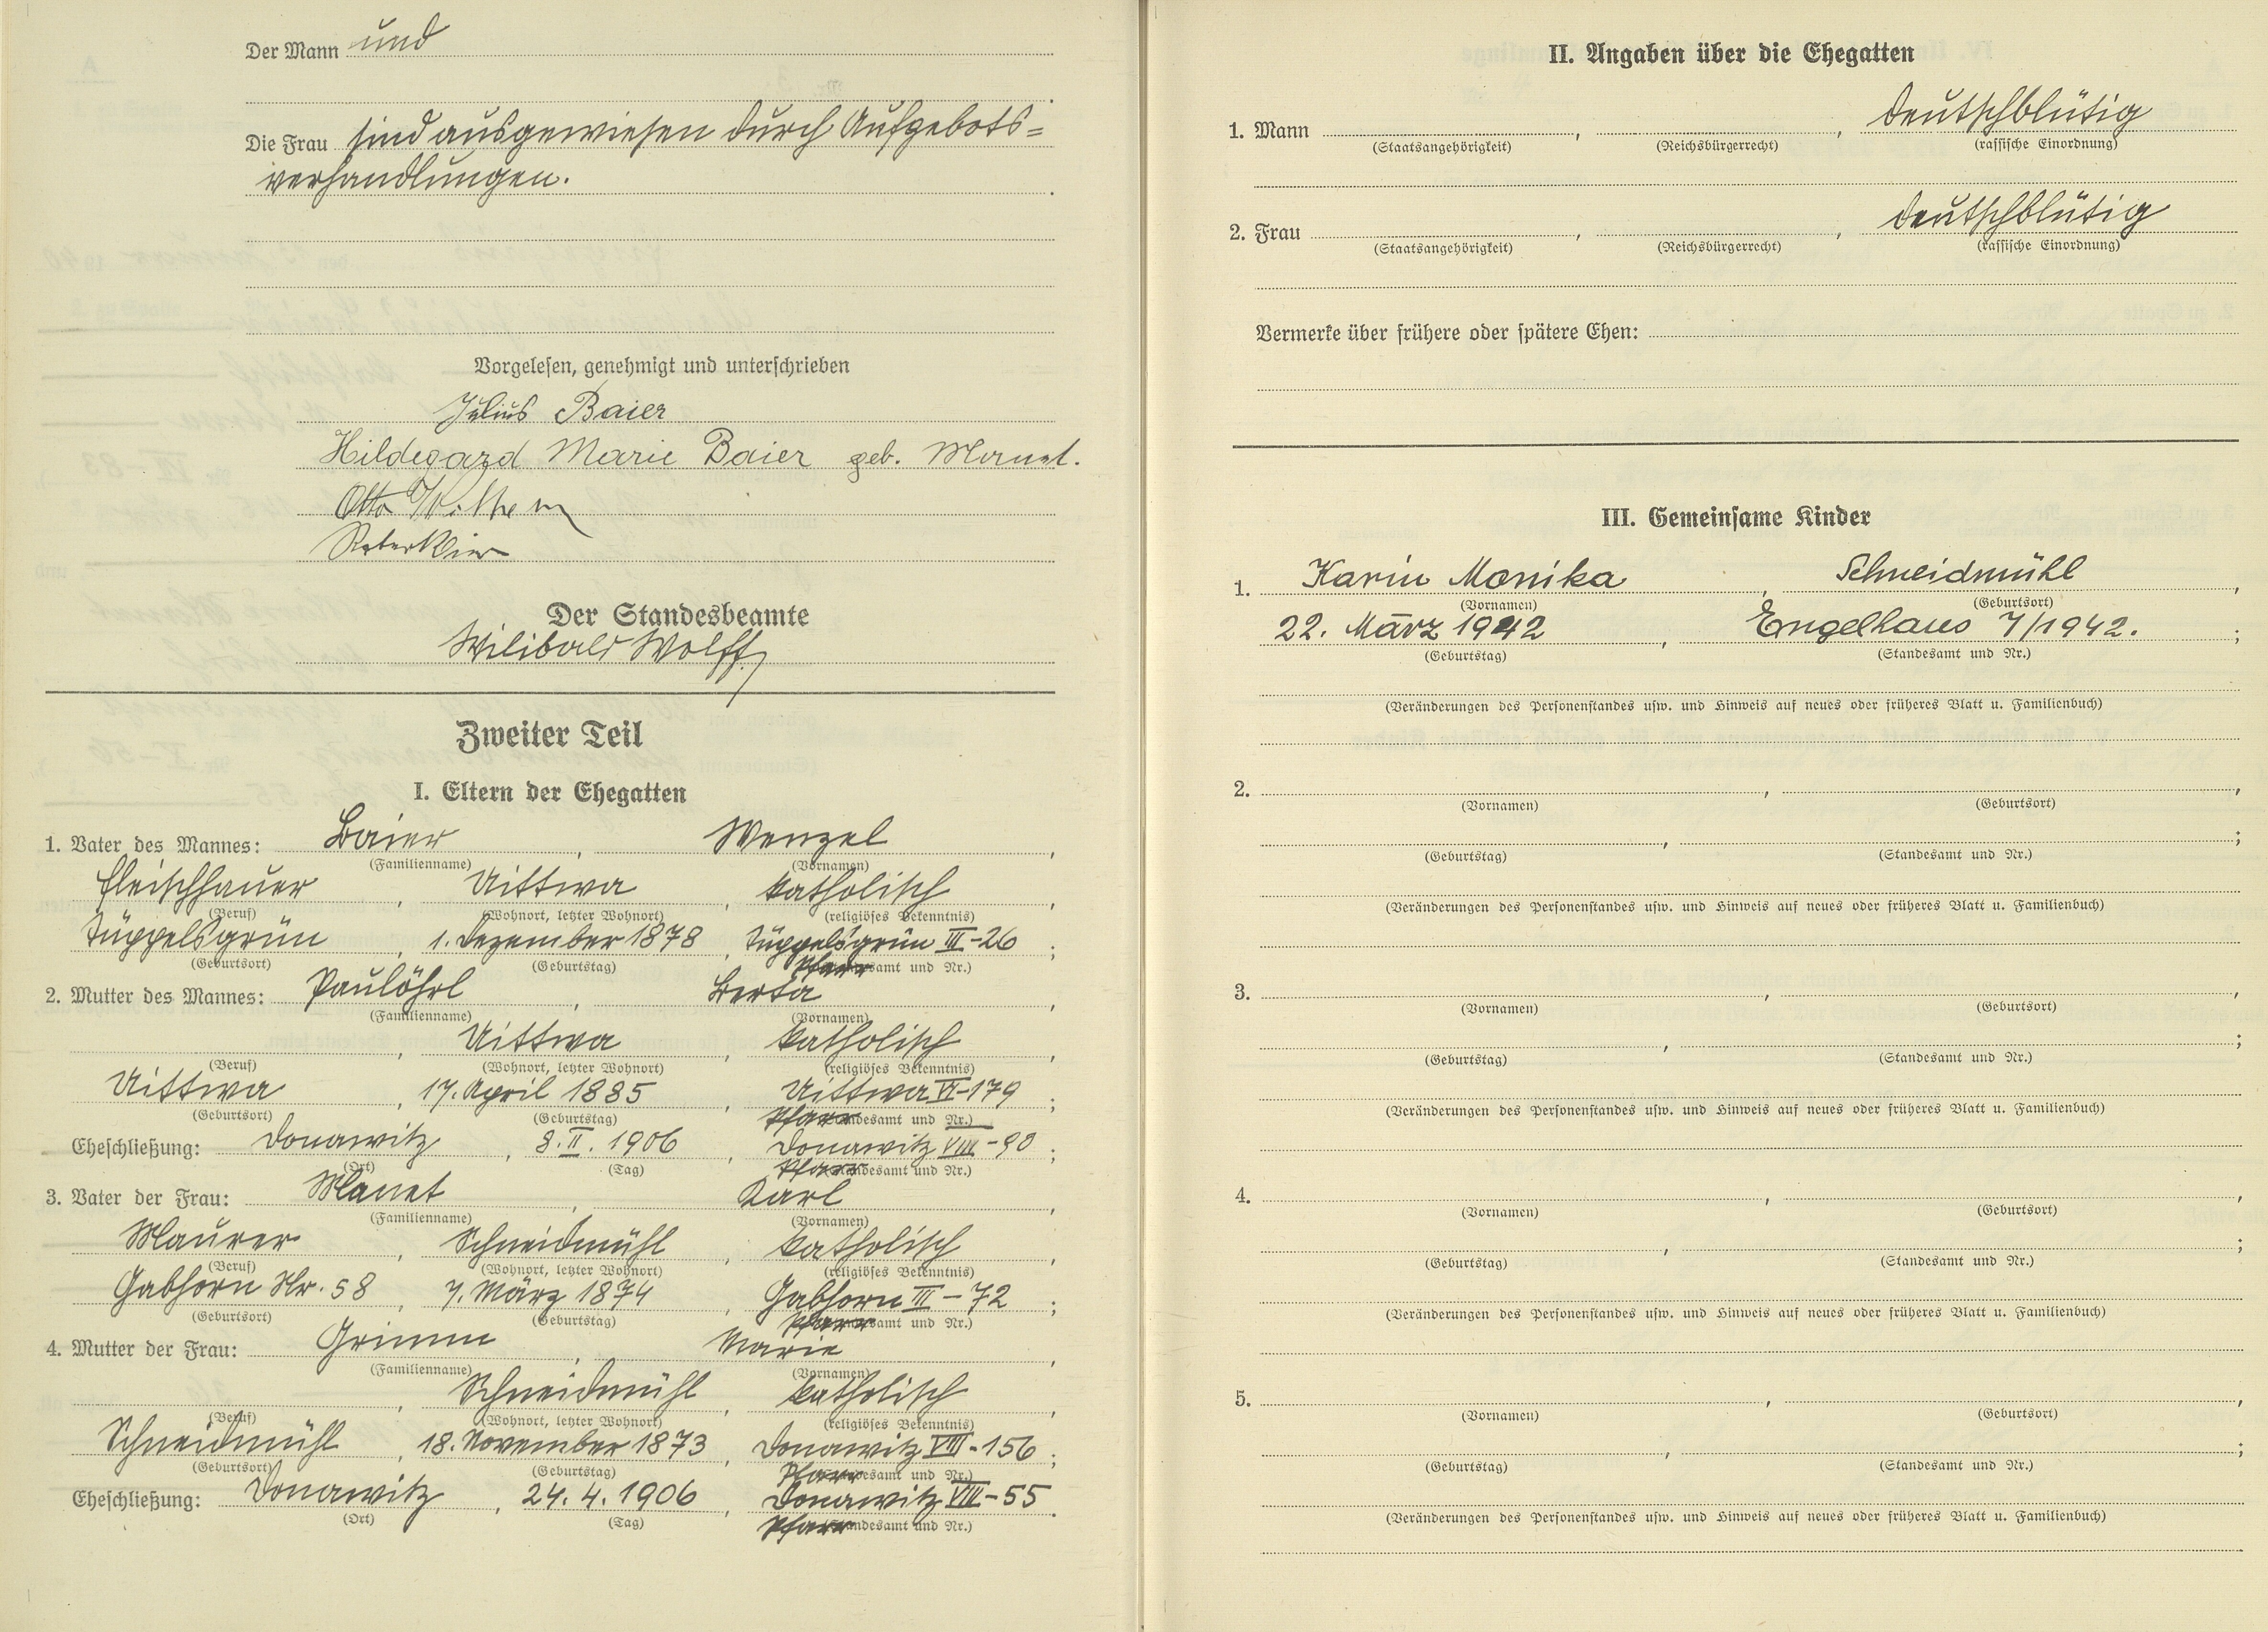 Der Mann und
Die Frau sind ausgewiesen durch Aufgebots=
verhandlungen.
Vorgelesen, genehmigt und unterschrieben
Julius Baier
Hildegard Marie Baier geb. Manet.
Otto
Der Standesbeamte
Wilibald Wolff
Zweiter Teil
I. Eltern der Ehegatten
1. Vater des Mannes: Baier, Wenzel,
(Familienname) (Vornamen)
Fleischhauer, Uittwa, katholisch,
(Beruf) (Wohnort, letzter Wohnort) (religiöses Bekenntnis)
Tüppelsgrün, 1. Dezember 1878, Tüppelsgrün III-26;
(Geburtsort) (Geburtstag) Pfarramt und Nr.)
2. Mutter des Mannes: Paulöhrl, Berta,
(Familienname) (Vornamen)
, Uittwa, katholisch,
(Beruf) (Wohnort, letzter Wohnort) (religiöses Bekenntnis)
Uittwa, 17. April 1885, Uittwa VI-179;
(Geburtsort) (Geburtstag) Pfarr desamt und Nr.)
Eheschließung: Donawitz, 8. II. 1906, Donawitz VIII-90;
(Ort) (Tag) Pfarr desamt und Nr.)
3. Vater der Frau: Manet, Karl,
(Familienname) (Vornamen)
Maurer, Schneidmühl, katholisch,
(Beruf) (Wohnort, letzter Wohnort) (religiöses Bekenntnis)
Gabhorn Nr. 58, 7. März 1874, Gabhorn III-72;
(Geburtsort) (Geburtstag) Pfarramt und Nr.)
4. Mutter der Frau: Grimm, Marie,
(Familienname) (Vornamen)
, Schneidmühl, katholisch,
(Beruf) (Wohnort, letzter Wohnort) (religiöses Bekenntnis)
Schneidmühl, 18. November 1873, Donawitz VIII-156;
(Geburtsort) (Geburtstag) Pfarr desamt und Nr.)
Eheschließung: Donawitz, 24. 4. 1906, Donawitz VIII-55.
(Ort) (Tag) Pfarr ndesamt und Nr.)
II. Angaben über die Ehegatten
1. Mann , , deutschblütig
(Staatsangehörigkeit) (Reichsbürgerrecht) (rassische Einordnung)
2. Frau , , deutschblütig
(Staatsangehörigkeit) (Reichsbürgerrecht) (rassische Einordnung)
Vermerke über frühere oder spätere Ehen:
III. Gemeinsame Kinder
1. Karin Monika, Schneidmühl,
(Vornamen) (Geburtsort)
22. März 1942, Engelhaus 7/1942.;
(Geburtstag) (Standesamt und Nr.)
(Veränderungen des Personenstandes usw. und Hinweis auf neues oder früheres Blatt u. Familienbuch)
2. , ,
(Vornamen) (Geburtsort)
, ;
(Geburtstag) (Standesamt und Nr.)
(Veränderungen des Personenstandes usw. und Hinweis auf neues oder früheres Blatt u. Familienbuch)
3. , ,
(Vornamen) (Geburtsort)
, ;
(Geburtstag) (Standesamt und Nr.)
(Veränderungen des Personenstandes usw. und Hinweis auf neues oder früheres Blatt u. Familienbuch)
4. , ,
(Vornamen) (Geburtsort)
, ;
(Geburtstag) (Standesamt und Nr.)
(Veränderungen des Personenstandes usw. und Hinweis auf neues oder früheres Blatt u. Familienbuch)
5. , ,
(Vornamen) (Geburtsort)
, ;
(Geburtstag) (Standesamt und Nr.)
(Veränderungen des Personenstandes usw. und Hinweis auf neues oder früheres Blatt u. Familienbuch)